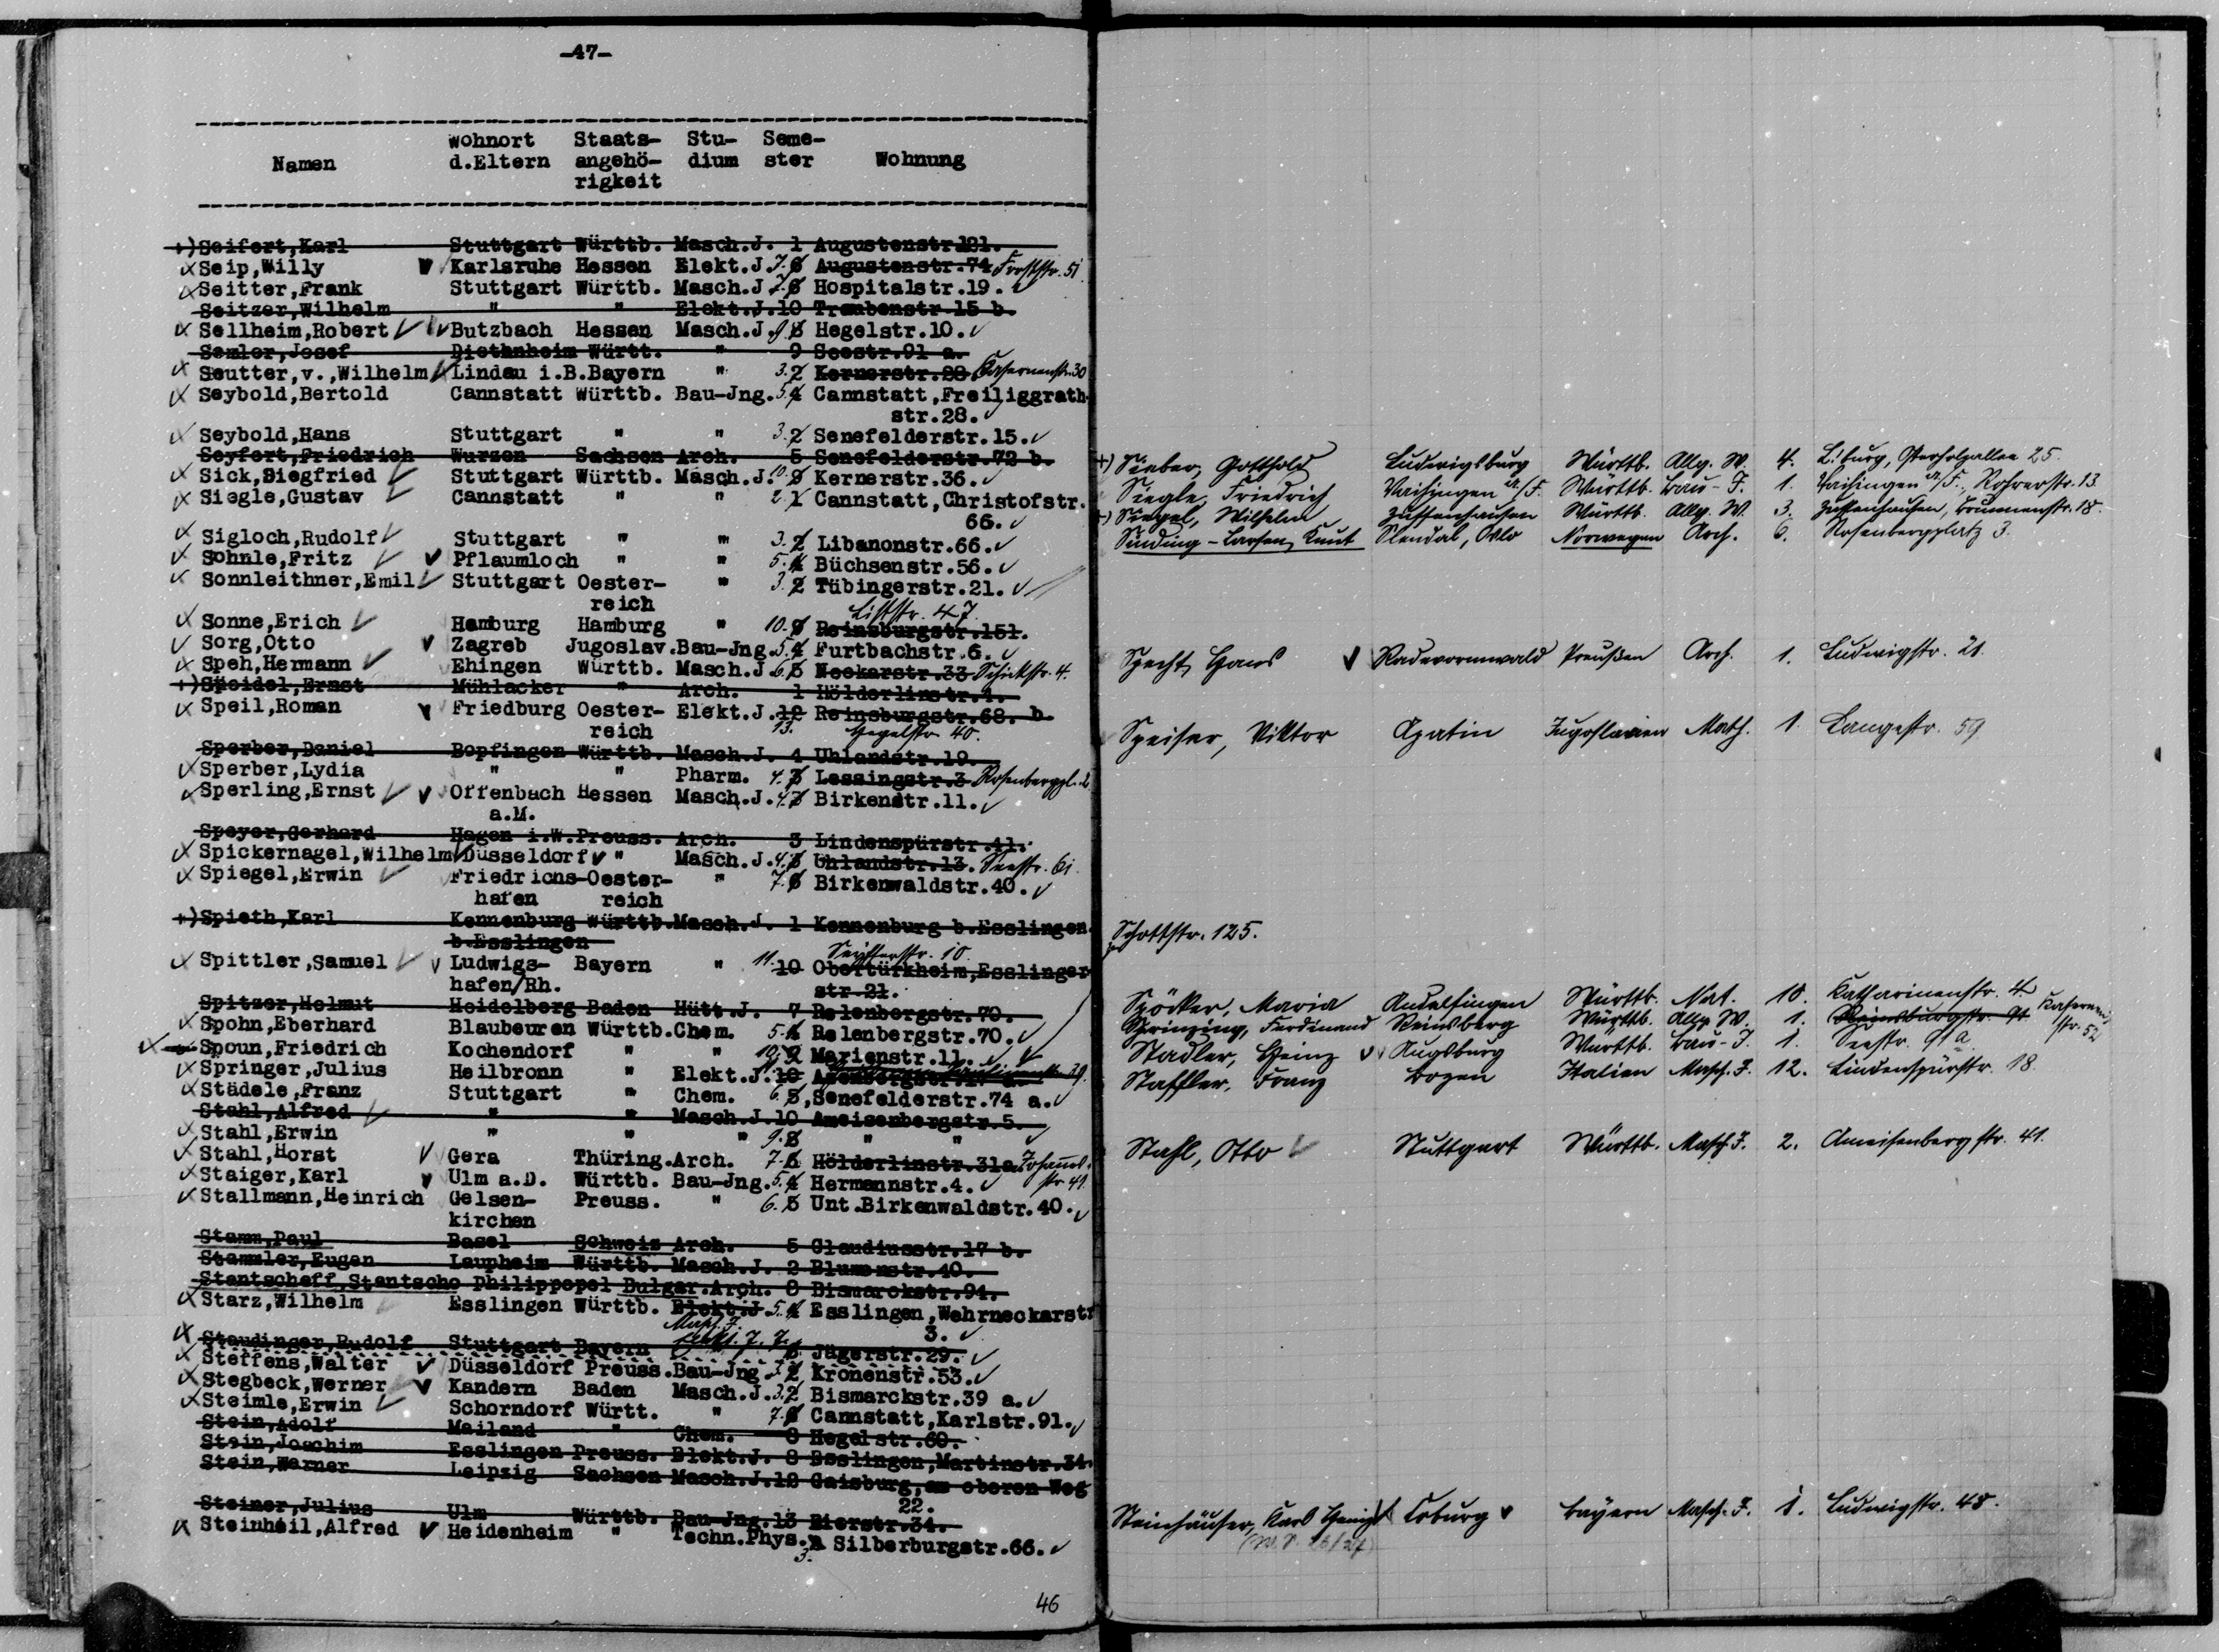 -47-
Namen wohnort d.Eltern Staats-angehö-rigkeit Stu-dium Seme-ster Wohnung
+) Seifert,Karl Stuttgart Württb. Masch.J. 1 Augustenstr.121.
Seip,Willy Karlsruhe Hessen Elekt.J. 7. 6 Augustenstr.74 Forststr. 51
Seitter,Frank Stuttgart Württb. Masch.J. 7. 6 Hospitalstr.19.
Seitzer,Wilhelm " " Elekt.J.10 Traubenstr.15 b.
Sellheim,Robert Butzbach Hessen Masch.J. 9. 8 Hegelstr.10.
Semler,Josef Diethnheim Württ. " 9 Seestr.91 a.
Seutter,v.,Wilhelm Lindau i.B.Bayern " 3. 2 Kernerstr.28 Kasernenstr.30
Seybold,Bertold Cannstatt Württb. Bau-Jng. 5. 4 Cannstatt,Freiliggrath-
str.28.
Seybold,Hans Stuttgart " " 3. 2 Senefelderstr.15.
Seyfert,Friedrich Wurzen Sachsen Arch. 5 Senefelderstr.72 b.
Sick,Siegfried Stuttgart Württb. Masch.J. 10. 9 Kernerstr.36.
Siegle,Gustav Cannstatt " " 2. 1 Cannstatt,Christofstr.
66.
Sigloch,Rudolf Stuttgart " " 3. 2 Libanonstr.66.
Söhnle,Fritz Pflaumloch " " 5. 4 Büchsenstr.56.
Sonnleithner,Emil Stuttgart Oester- " 3. 2 Tübingerstr.21.
reich
Liststr. 47.
Sonne,Erich Hamburg Hamburg " 10. 9 Reinsburgstr.151.
Sorg,Otto Zagreb Jugoslav.Bau-Jng. 5. 4 Furtbachstr.6.
Speh,Hermann Ehingen Württb. Masch.J. 6. 5 Neckarstr.33 Schickstr. 4.
+) Speidel,Ernst Mühlacker " Arch. 1 Hölderlinstr.4.
Speil,Roman Friedburg Oester- Elekt.J. 12 Reinsburgstr.68. b.
reich 13. Hegelstr. 40.
Sperber,Daniel Bopfingen Württb. Masch.J. 4 Uhlandstr.19.
Sperber,Lydia " " Pharm. 4. 3 Lessingstr.3 Rosenbergpl. 2
Sperling,Ernst Offenbach Hessen Masch.J. 4. 3 Birkenstr.11.
a.M.
Speyer,Gerhard Hagen i.W.Preuss. Arch. 3 Lindenspürstr.41.
Spickernagel,Wilhelm Düsseldorf " Masch.J. 4. 3 Uhlandstr.13. Seestr. 61.
Spiegel,Erwin Friedrichs-Oester- " 7. 6 Birkenwaldstr.40.
hafen reich
+) Spieth,Karl Kennenburg Württb.Masch.J. 1 Kennenburg b.Esslingen.
b.Esslingen
Spittler,Samuel Ludwigs- Bayern " 11. 10 Obertürkheim,Esslinger-
hafen/Rh. str.21.
Spitzer,Helmut Heidelberg Baden Hütt.J. 7 Relenbergstr.70.
Spohn,Eberhard Blaubeuren Württb.Chem. 5. 4 Relenbergstr.70.
Spoun,Friedrich Kochendorf " " 10. 9 Marienstr.11.
Springer,Julius Heilbronn " Elekt.J. 10
Städele,Franz Stuttgart " Chem. 6. 5 Senefelderstr.74 a.
Stahl,Alfred " " Masch.J.10 Ameisenbergstr.5.
Stahl,Erwin " " " 9. 8 " "
Stahl,Horst Gera Thüring.Arch. 7. 6 Hölderlinstr.31a. Johannes-
str. 41.
Staiger,Karl Ulm a.D. Württb. Bau-Jng. 5. 4 Hermannstr.4.
Stallmann,Heinrich Gelsen- Preuss. " 6. 5 Unt.Birkenwaldstr.40.
kirchen
Stamm,Paul Basel Schweiz Arch. 5 Claudiusstr.17 b.
Stammler,Eugen Laupheim Württb. Masch.J. 2 Blumenstr.40.
Stantscheff,Stantscho Philippopel Bulgar.Arch. 8 Bismarckstr.94.
Starz,Wilhelm Esslingen Württb. Elekt.J 5. 4 Esslingen,Wehrneckarstr
Masch. J. 3.
Staudinger,Rudolf Stuttgart Bayern 7. 6 Jägerstr.29.
Steffens,Walter Düsseldorf Preuss.Bau-Jng. 3. 2 Kronenstr.53.
Stegbeck,Werner Kandern Baden Masch.J. 3. 2 Bismarckstr.39 a.
Steimle,Erwin Schorndorf Württ. " 7. 6 Cannstatt,Karlstr.91.
Stein,Adolf Mailand " Chem. 8 Hegelstr.60.
Stein,Joachim Esslingen Preuss. Elekt.J. 8 Esslingen,Martinstr.34.
Stein,Werner Leipzig Sachsen Masch.J.12 Gaisburg,am oberen Weg
22.
Steiner,Julius Ulm Württb. Bau-Jng.13 Bierstr.34.
Steinheil,Alfred Heidenheim " Techn.Phys. 2 Silberburgstr.66.
3.
46
+) Sieber, Gotthold Ludwigsburg Württb. Allg. W. 4. L'burg, Osterholzallee 25.
Siegle, Friedrich Vaihingen a/F. Württb. Bau-J. 1. Vaihingen a/F., Rohrerstr. 13
+) Siegel, Wilhelm Zuffenhausen Württb. Allg. W. 3. Zuffenhausen, Brunnenstr. 18.
Sinding-Larsen, Knut Slendal, Oslo Norwegen Arch. 6. Rosenbergplatz 3.
Specht, Hans Radevormwald Preußen Arch. 1. Ludwigstr. 21.
Speiser, Viktor Apatin Jugoslavien Math. 1. Langestr. 59
Schottstr. 125.
Spöcker, Maria Andelfingen Württb. Nat. 10. Katharinenstr. 4.
Sprinzing, Ferdinand Weinsberg Württb. Allg. W. 1. Reinsburgstr. Kasernen-
str. 52
Stadler, Heinz Augsburg Württb. Bau-J. 1. Seestr. 91a
Staffler, Franz Bozen Italien Masch. J. 12. Lindenspürstr. 18.
Stahl, Otto Stuttgart Württb. Masch J. 2. Ameisenbergstr. 41.
Steinhäuser, Karl Coburg Bayern Masch. J. 1. Ludwigstr. 48.